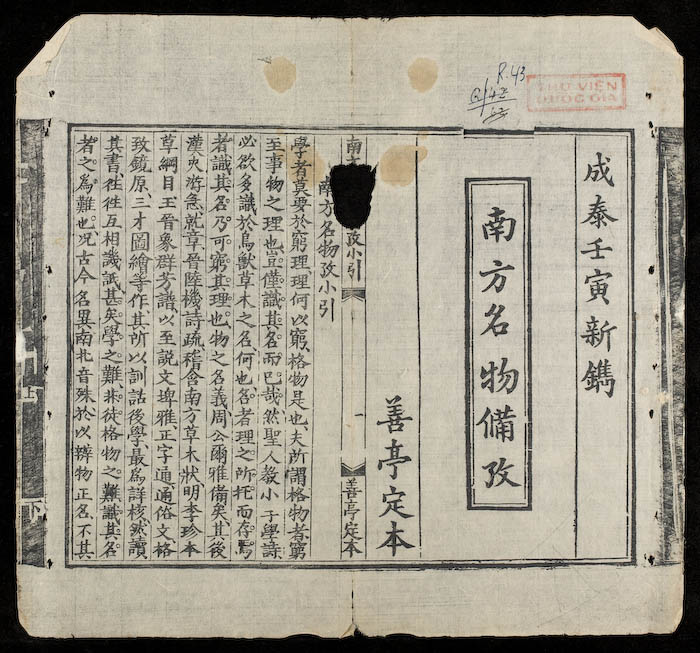 R.43
THƯ VIỆN
QUỐC GIA
成泰壬寅新鐫
南方名物備攷
善亭定本
南 攷小引 一 善亭定本
南方名物攷小引
學者莫要於窮理理何以窮格物是也夫所謂格物者窮
至事物之理也豈僅識其名而已哉然聖人教小子學詩
必欲多識於鳥獸草木之名何也名者理之所托而存焉
者識其名乃可窮其理也物之名義周公爾雅備矣其後
漢史游急就章晉陸機詩疏嵇含南方草木狀明李珍本
草綱目王晉象群芳譜以至說文埤雅正字通通俗文格
致鏡原三才圖繪等作其所以訓詁後學最為詳核然讀
其書徃徃互相譏詆甚矣學之難非徒格物之難識其名
者之為難也况古今名異南北音殊於以辨物正名不其
上
下